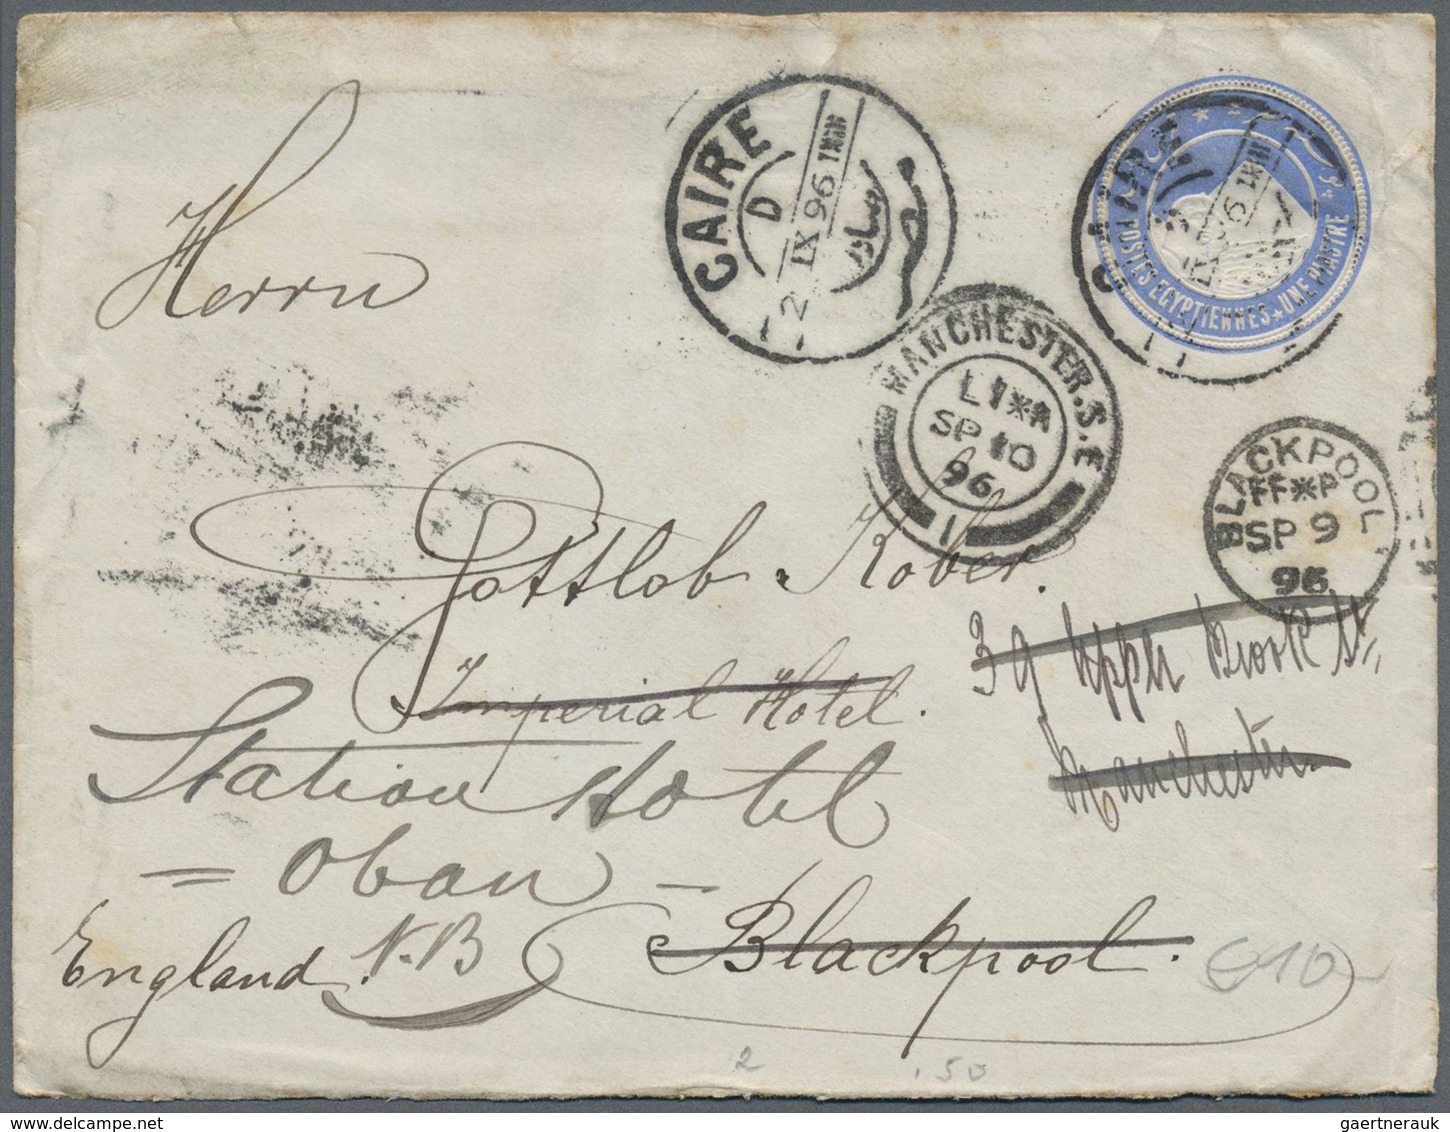 CAIRE
D
2 IX 96
POSTES EGYPTIENNES ★ UNE PIASTRE
CAIRE
Herrn
MANCHESTER.S.E
L1*A
SP 10
96
1
BLACKPOOL
FF*P
SP 9
96
Gottlob Kober.
39 Upper Brook St.
Imperial Hotel.
Manchester
Station Hotel
= Oban –
England. N.B
Blackpool.
2 .50
gaertnerauk @ www.delcampe.net